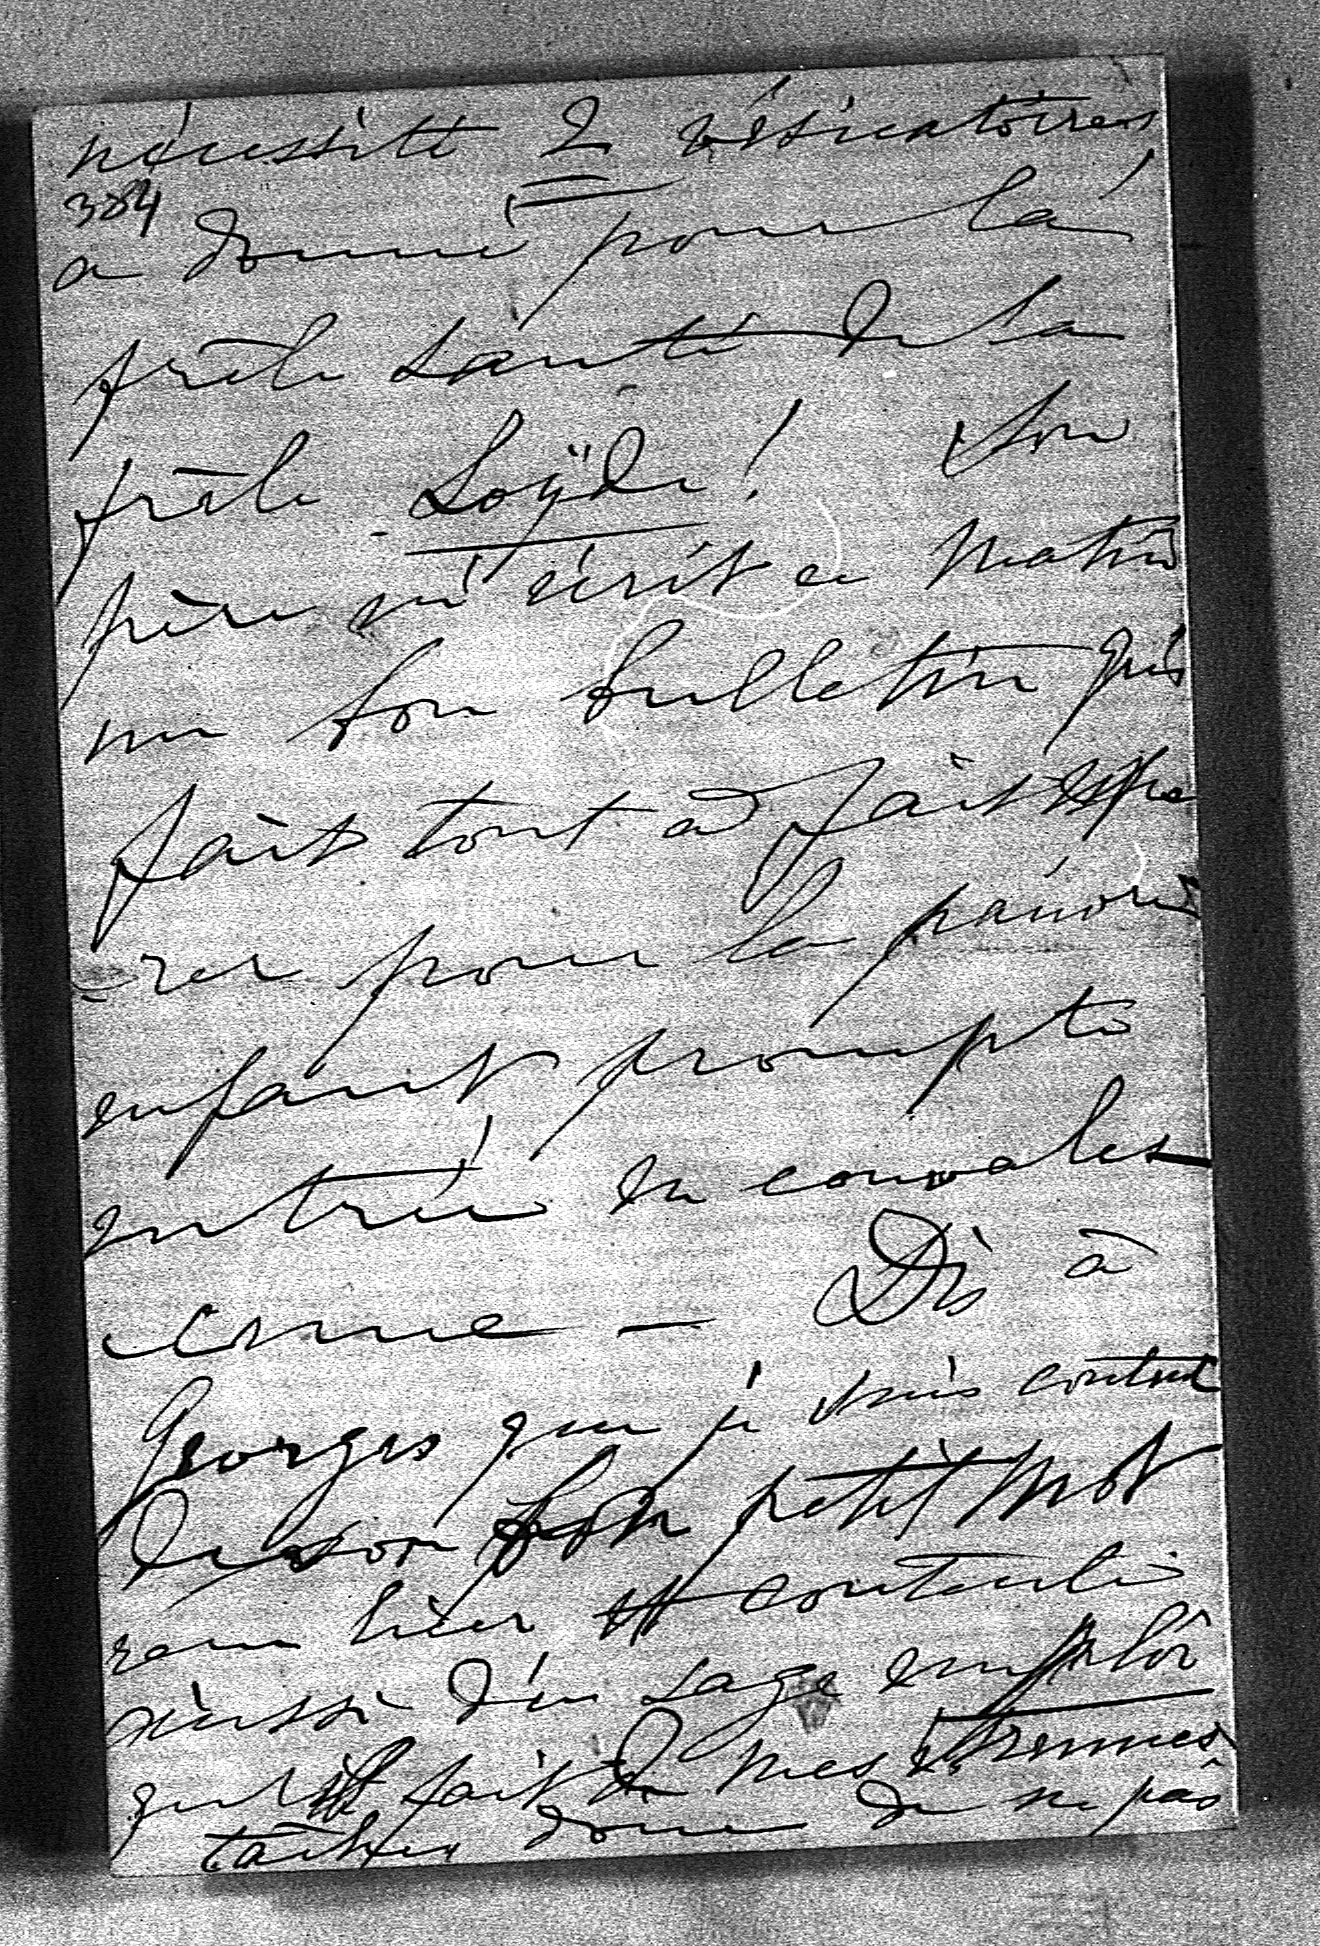 nécessité 2 vésicatoires
384
a donné pour la
frêle santé de la
frêle Loÿde! Son
père m'écrit ce matin
un bon bulletin qui
fait tout à fait espé
=rer pour la pauvre
enfant prompte
entrée en convales
cence — Dis à
Georges que je suis content
de son bon petit mot
reçu hier et contente
aussi d'un sage emploi
qu'il fait de mes étrennes
tachez donc de ne pas